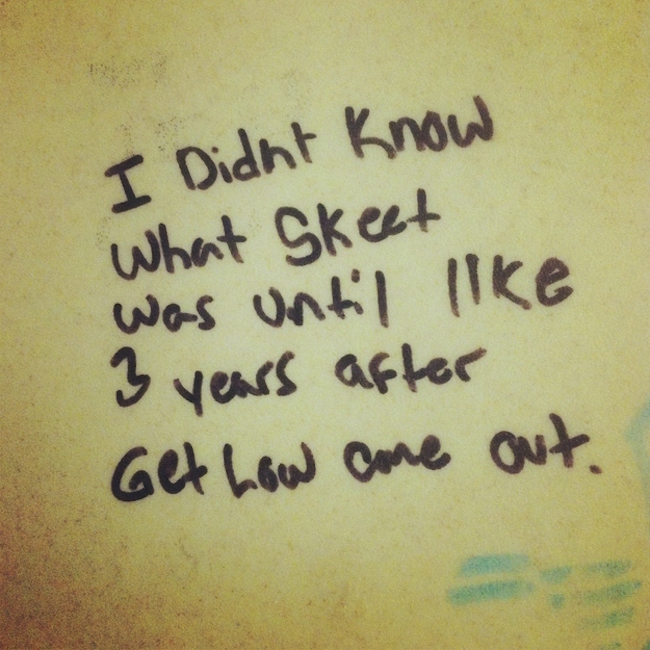 I Didnt Know
What Skeet
was until like
3 years after
Get Low came out.